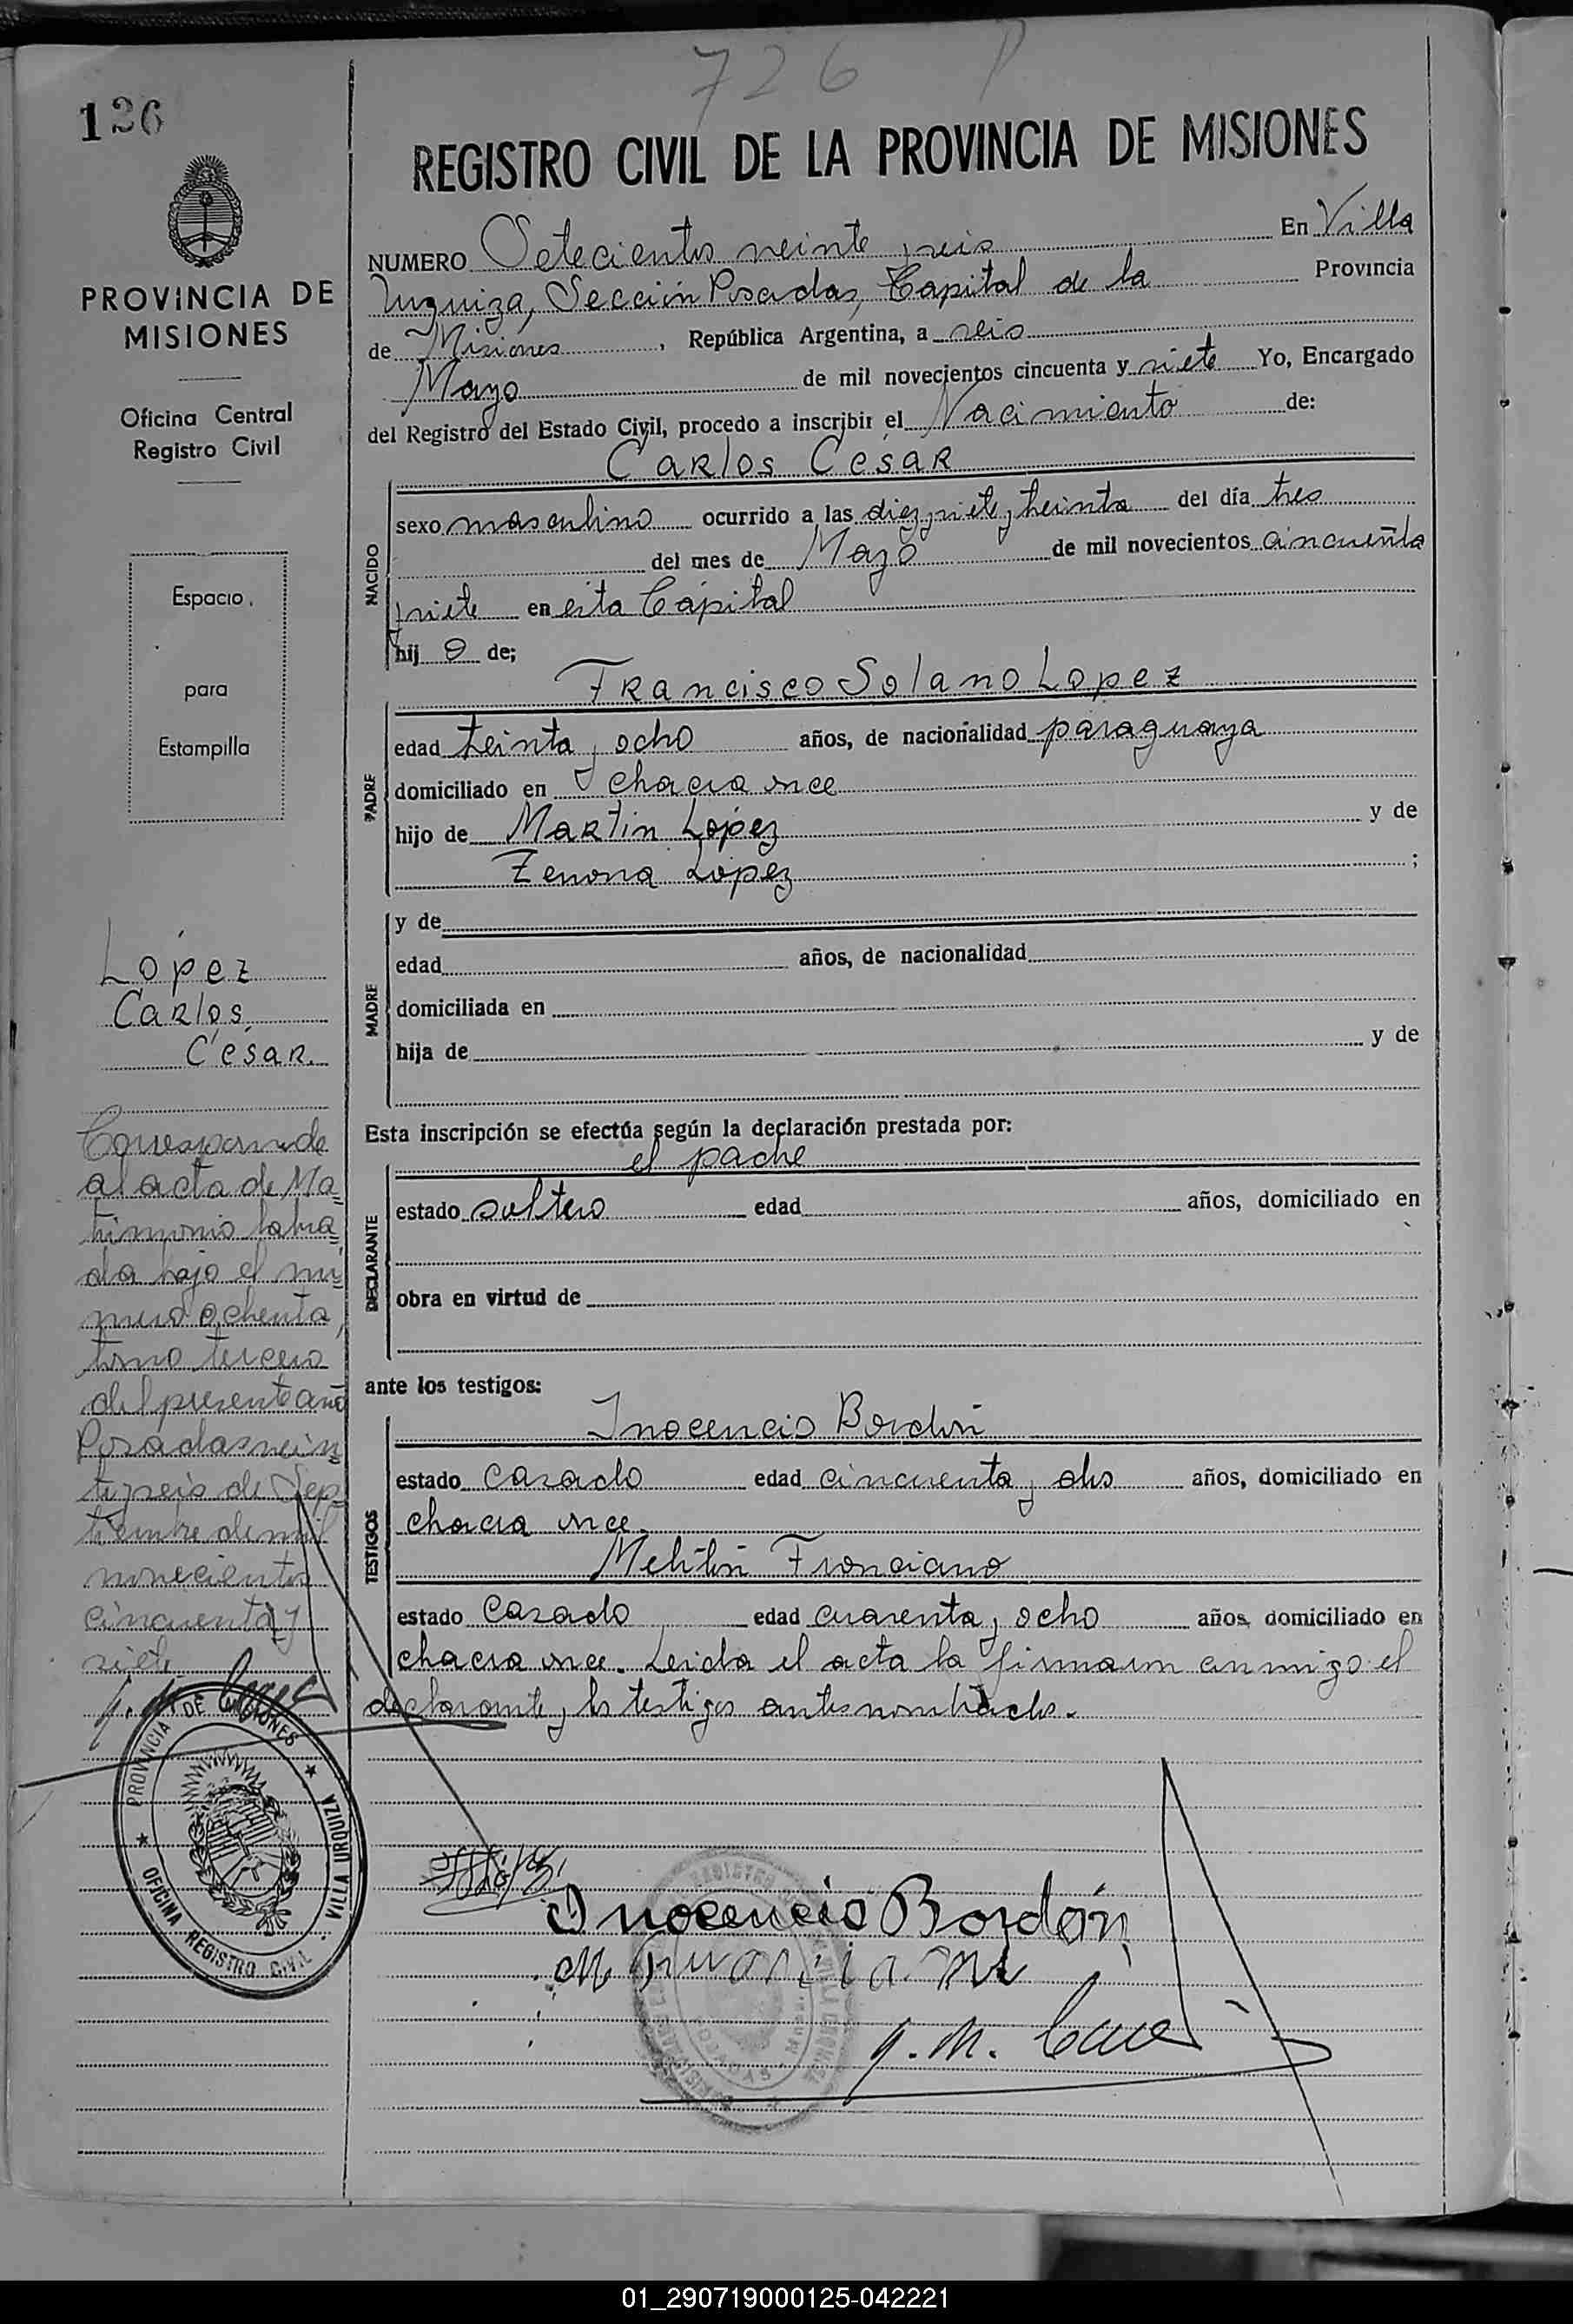 726 P
136
REGISTRO CIVIL DE LA PROVINCIA DE MISIONES
PROVINCIA DE
MISIONES
Oficina Central
Registro Civil
Espacio
para
Estampilla
NUMERO Setecientos veinte y seis En Villa
Urquiza, Sección Posadas, Capital de la Provincia
de Misiones, República Argentina, a seis
Mayo de mil novecientos cincuenta y siete Yo, Encargado
del Registro del Estado Civil, procedo a inscribir el Nacimiento de:
Carlos Cesar
NACIDO
sexo masculino ocurrido a las diez y siete y treinta del día tres
del mes de Mayo de mil novecientos cincuenta
y siete en esta Capital
hij o de;
Francisco Solano Lopez
PADRE
edad treinta y ocho años, de nacionalidad paraguaya
domiciliado en chacra once
hijo de Martin López y de
Zenona López ;
MADRE
y de
edad años, de nacionalidad
domiciliada en
hija de y de
Esta inscripción se efectúa según la declaración prestada por:
el padre
DECLARANTE
estado soltero edad años, domiciliado en
obra en virtud de
ante los testigos:
Inocencio Bordón
TESTIGOS
estado casado edad cincuenta y dos años, domiciliado en
chacra once.
Melitón Franciano
estado casado edad cuarenta y ocho años domiciliado en
chacra once. Leida el acta la firmaron conmigo el
declarante y los testigos antes nombrados.
López
Carlos
César.
Corresponde
al acta de Ma
trimonio labra
da bajo el nú
mero ochenta,
tomo tercero
del presente año
Posadas vein
te y seis de Sep
tiembre de mil
novecientos
cincuenta y
siete
PROVINCIA DE MISIONES
VILLA URQUIZA
OFICINA REGISTRO CIVIL
Inocencio Bordón
01_290719000125-042221